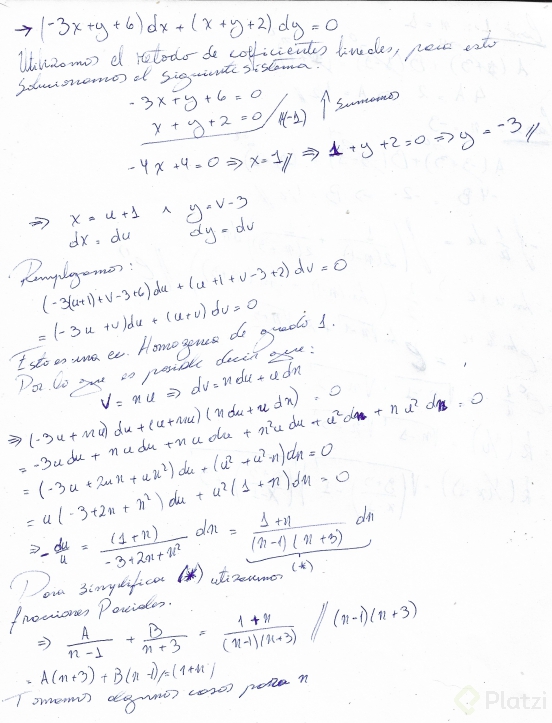 → (-3x+y+6)dx + (x+y+2)dy = 0
Utilizamos el metodo de coeficientes lineales, para esto
solucionamos el siguiente sistema.
-3x+y+6 = 0
x+y+2 = 0 /(-1) ↑ Sumamos
-4x+4=0 ⇒ x=1// ⇒ 1+y+2=0 ⇒ y=-3//
⇒ x = u+1 ∧ y=v-3
dx = du dy = dv
Remplazamos:
(-3(u+1)+v-3+6)du + (u+1+v-3+2)dv = 0
= (-3u+v)du + (u+v)dv = 0
Esto es una ec. Homogenea de grado 1.
Por lo que es posible decir que:
v = nu ⇒ dv = ndu + udn
⇒ (-3u+nu)du + (u+nu)(ndu+udn) = 0
= -3udu + nudu + nudu + n²udu + u²dn + nu²dn = 0
= (-3u+2un+un²)du + (u²+u²n)dn = 0
= u(-3+2n+n²)du + u²(1+n)dn = 0
⇒ -du/u = (1+n)/(-3+2n+n²) dn = (1+n)/((n-1)(n+3)) dn
(*)
Para simplificar (*) utilizamos
fracciones Parciales.
⇒ A/(n-1) + B/(n+3) = (1+n)/((n-1)(n+3)) // (n-1)(n+3)
= A(n+3) + B(n-1) = (1+n)
Tomamos algunos casos para n
Platzi